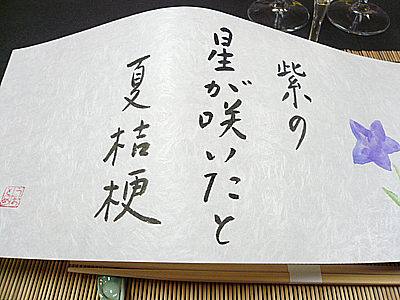 紫の
星が咲いたと
夏桔梗